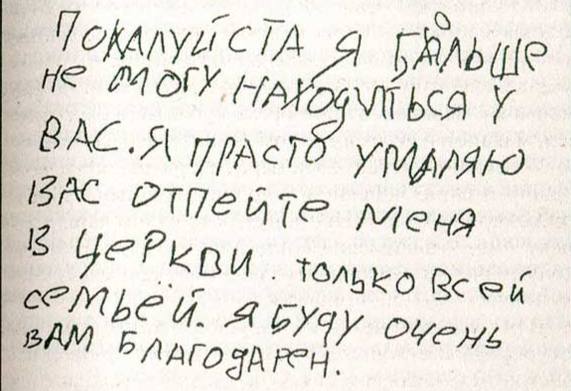 ПОЖАЛУЙСТА Я БОЛЬШЕ
НЕ МОГУ НАХОДИТЬСЯ У
ВАС. Я ПРАСТО УМАЛЯЮ
ВАС ОТПЕЙТЕ МЕНЯ
В ЦЕРКВИ. ТОЛЬКО ВСЕЙ
СЕМЬЕЙ. Я БУДУ ОЧЕНЬ
ВАМ БЛАГОДАРЕН.